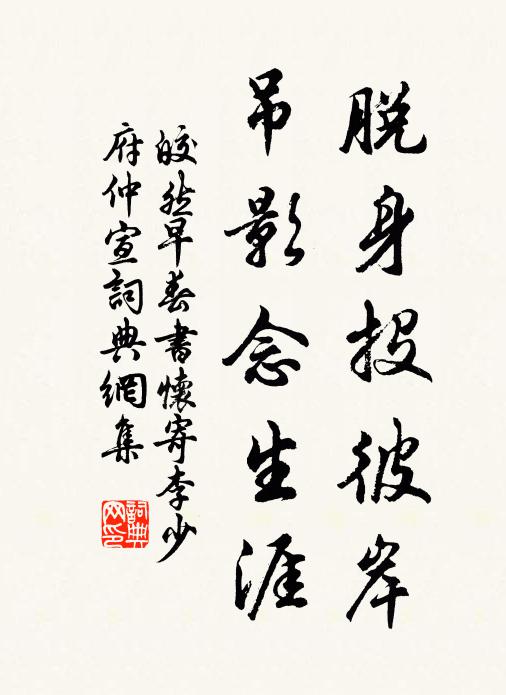 脱身投彼岸
吊影念生涯
皎然早春書懷寄李少
府仲宣詞典網集
詞典
网印